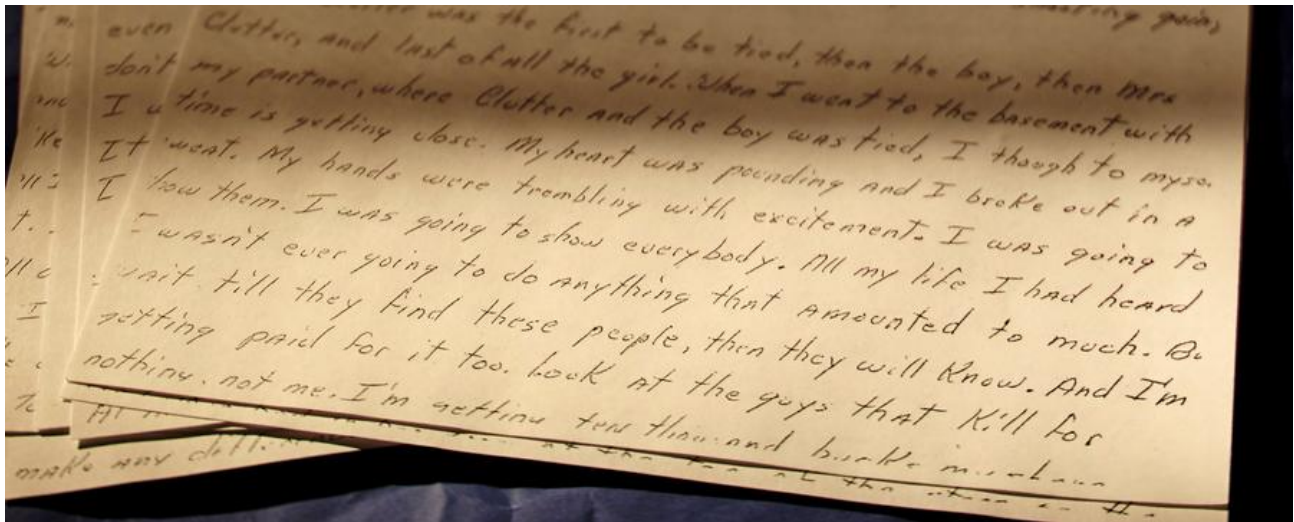 going,
was the first to be tied, then the boy, then Mrs
even Clutter, and last of all the girl. When I went to the basement with
don't my partner, where Clutter and the boy was tied, I though to myse
I time is getting close. My heart was pounding and I broke out in a
It sweat. My hands were trembling with excitement. I was going to
I show them. I was going to show everybody. All my life I had heard
I wasn't ever going to do anything that amounted to much. Bu
wait till they find these people, then they will Know. And I'm
getting paid for it too. Look at the guys that Kill for
nothing, not me. I'm getting ten thousand bucks
make any